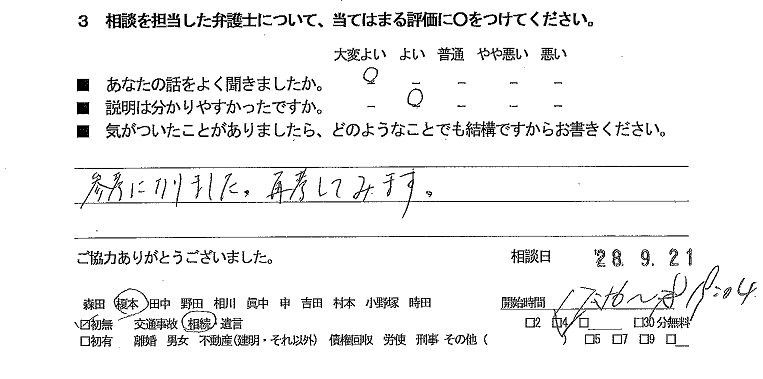 3 相談を担当した弁護士について、当てはまる評価に○をつけてください。
大変よい よい 普通 やや悪い 悪い
■ あなたの話をよく聞きましたか。 ○ － － － －
■ 説明は分かりやすかったですか。 － ○ － － －
■ 気がついたことがありましたら、どのようなことでも結構ですからお書きください。
参考になりました。再考してみます。
ご協力ありがとうございました。 相談日 '28.9.21
森田 榎本 田中 野田 相川 眞中 申 吉田 村本 小野塚 時田 開始時間
☑初無 交通事故 相続・遺言 □2 ☑4 □__ □30分無料
□初有 離婚 男女 不動産(建明・それ以外) 債権回収 労使 刑事 その他( ) □5 □7 □9 □__